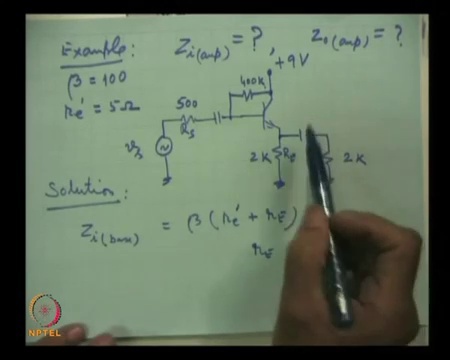 Example: Zi(amp) = ? , Zo(amp) = ?
β = 100
re' = 5Ω
+9V
400K
500
Rs
vs
2K RE 2K
Solution:
Zi(base) = β (re' + rE)
rE
NPTEL